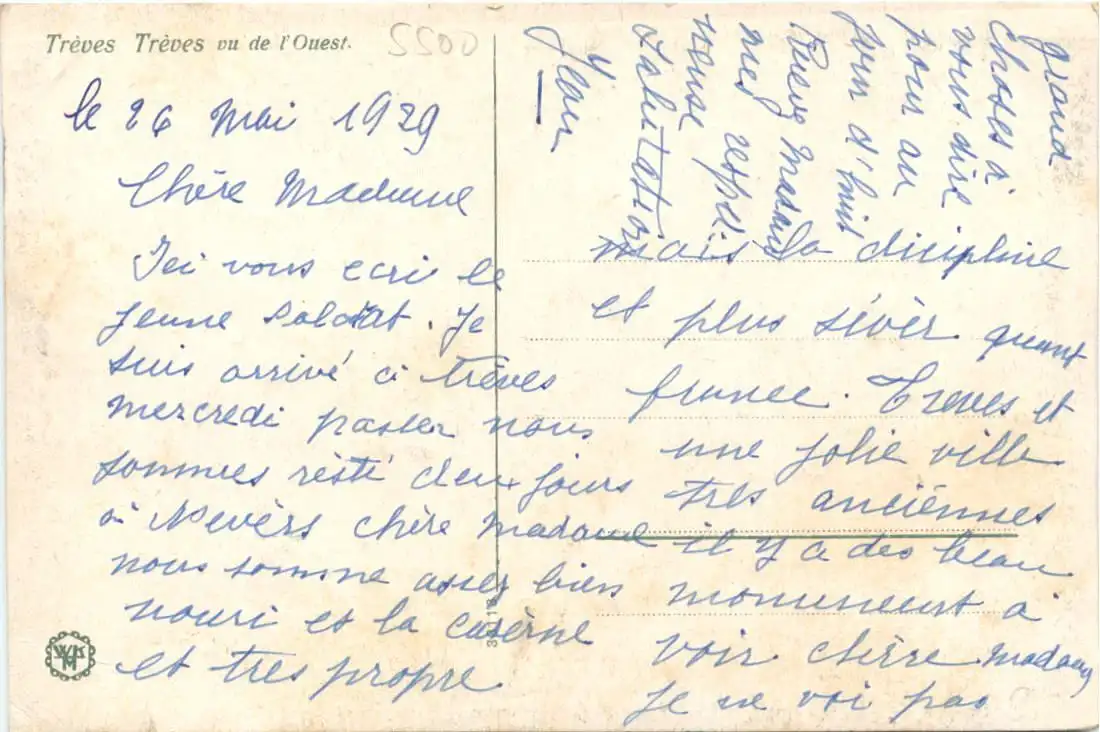 Trèves Trèves vu de l'Ouest.
5500
le 26 Mai 1929
Chère Madame
Ici vous ecri le
jeune soldat. Je
suis arrivé a trèves
mercredi passer nous
sommes résté deux jours
a Nevèrs chère madame
nous somme assez bien
nouri et la caserne
et tres propre
mais la dicipline
et plus sévèr quant
france. Treves et
une jolie ville
tres anciénnes
il y a des beau
monument a
voir chèrre madame
je ne voi pas
grand
choses à
vous dire
pour au
jour d'huit
Recevez Madame
mes respec
neuse
Salutation
Jean
WKM